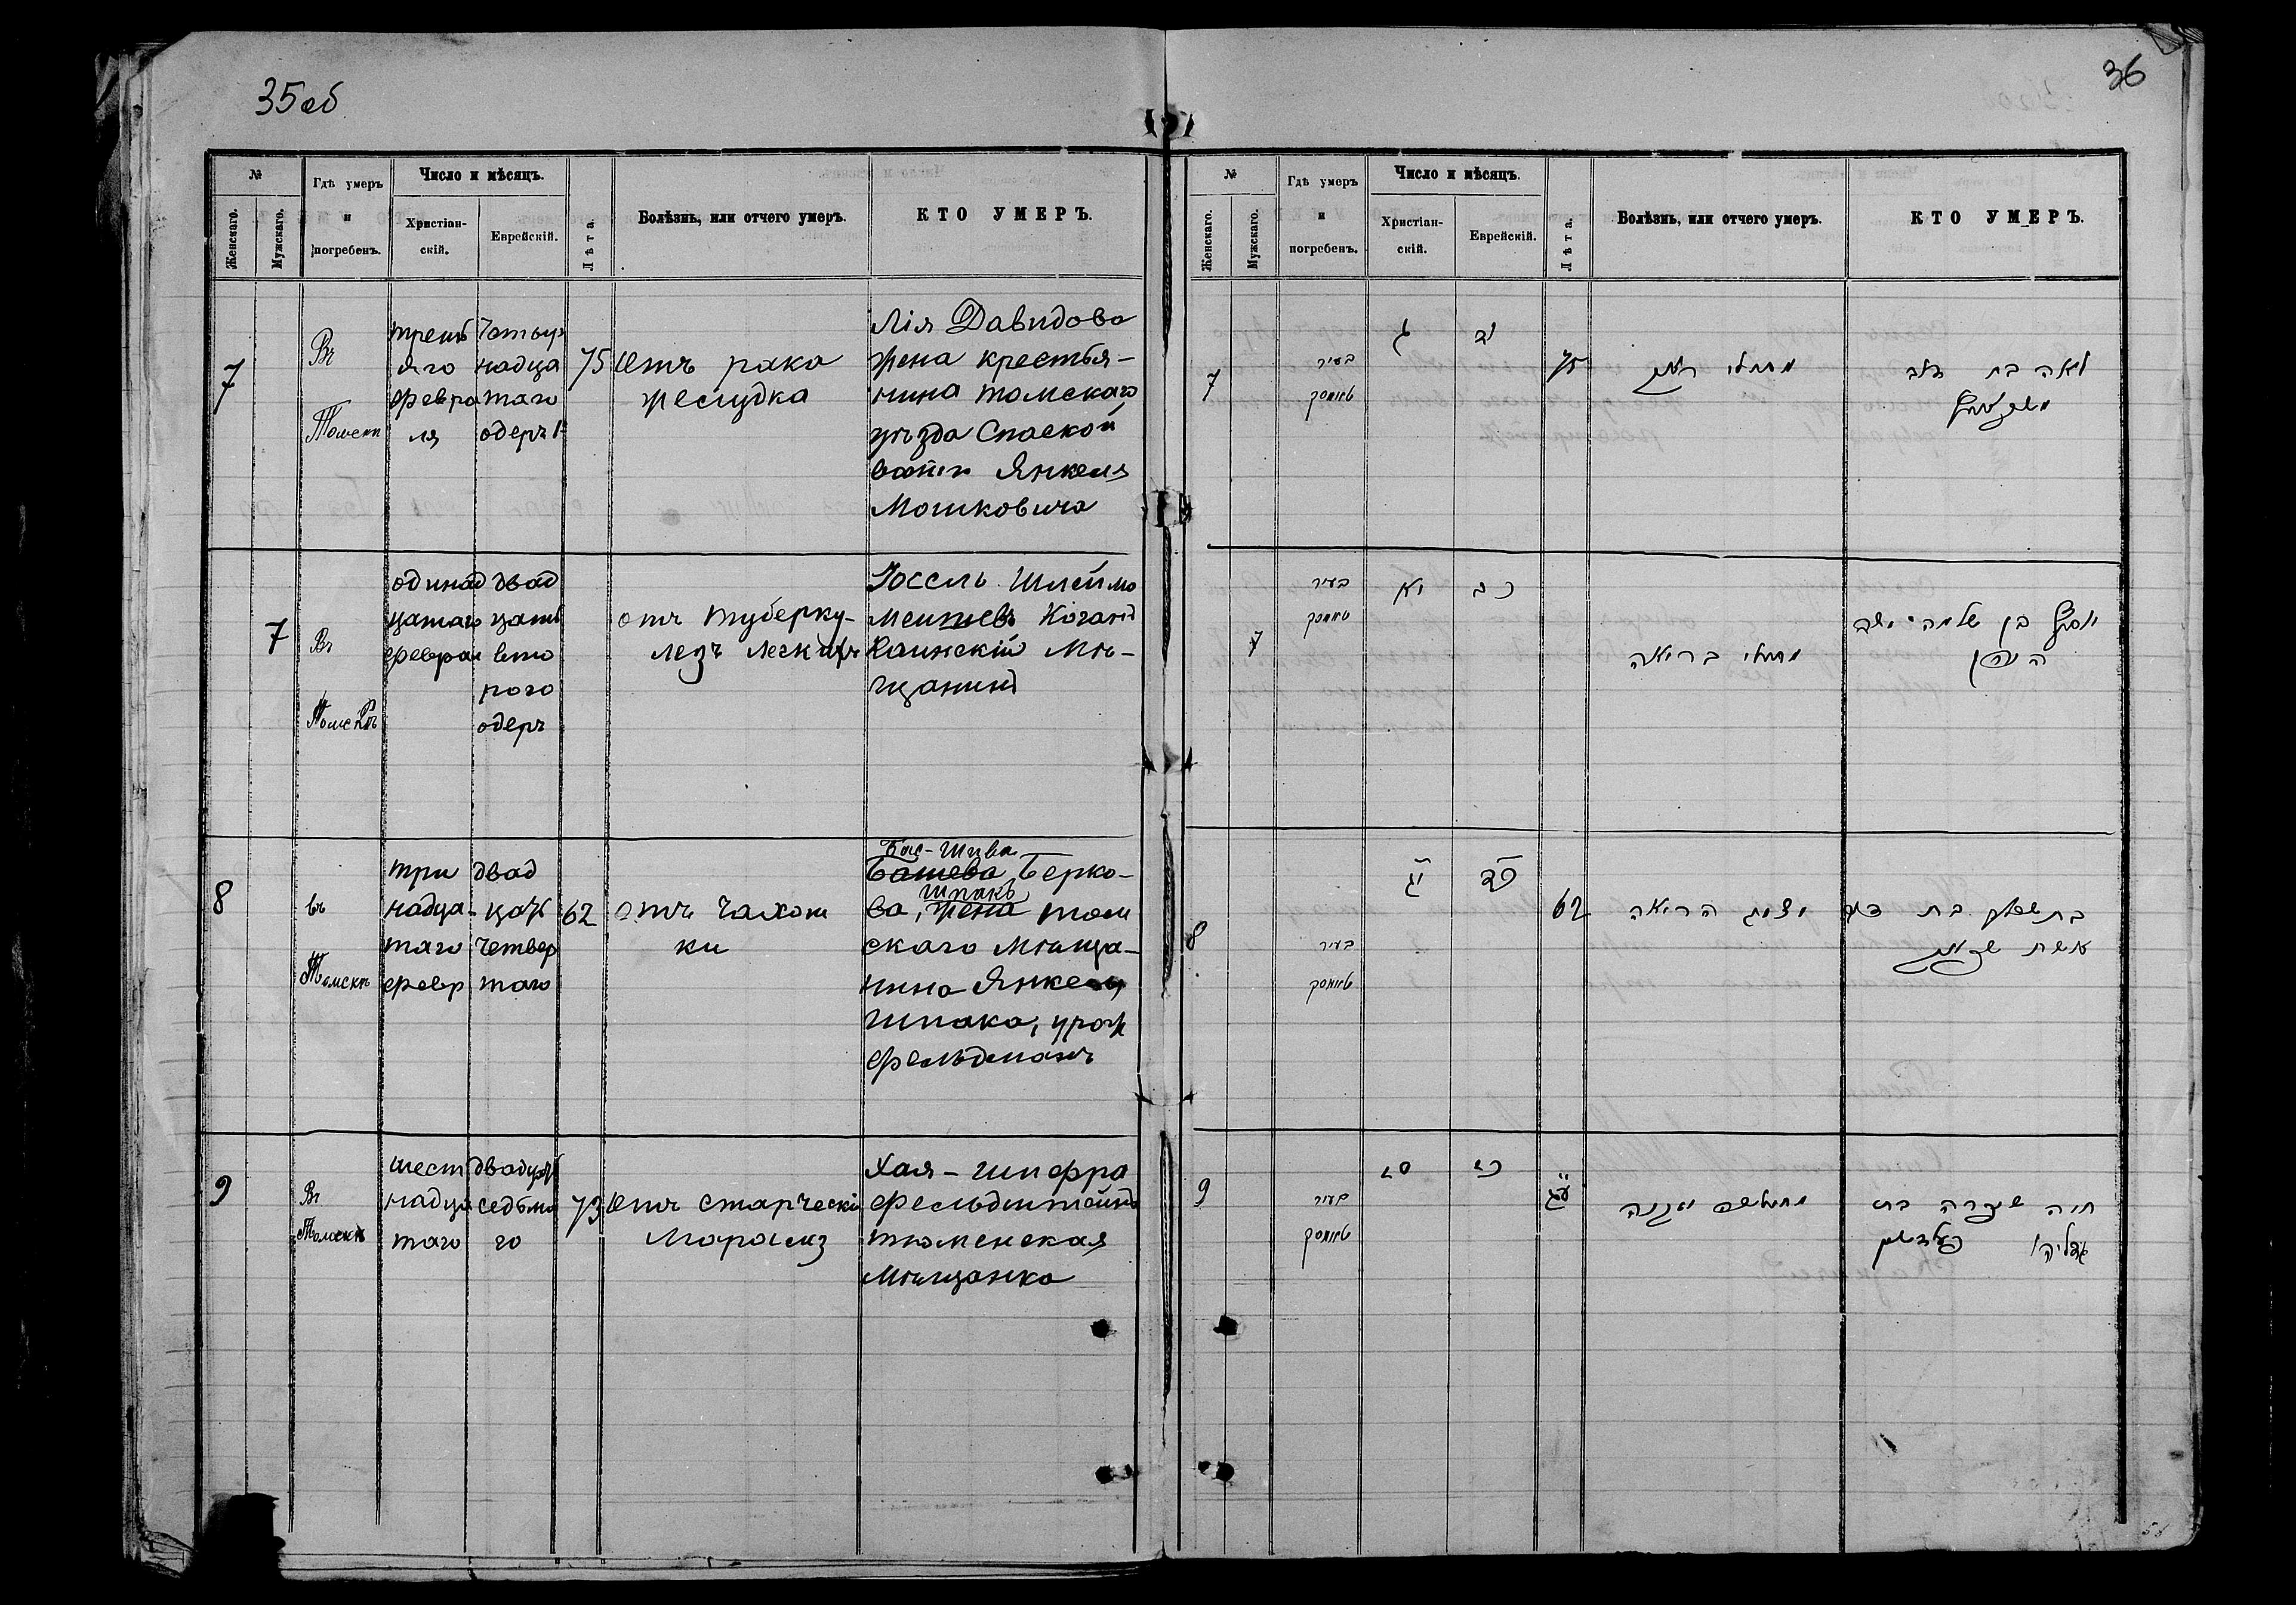 35об
36
№
Женскаго.
Мужскаго.
Гдѣ умеръ
и
погребенъ.
Число и мѣсяцъ.
Христіан-
скій.
Еврейскій.
Лѣта.
Болѣзнь, или отчего умеръ.
КТО УМЕРЪ.
7
Въ
Томскѣ
треть
яго
февра
ля
Четыр
надца
таго
одеръ
75
Отъ рака
желудка
Лія Давидова
жена крестья-
нина томскаго
уѣзда Спаской
Янкеля
Мошковича
7
Въ
Томскѣ
одинад
цатаго
феврал
двад
цать
вто
рого
одеръ
отъ туберку-
лезъ легкихъ
Іоссель Шлейма
Коганъ
Каинскій Мѣ-
щанинъ
8
въ
Томскѣ
три
надца-
таго
февр
двад
цать
Четвер
таго
62
отъ чахот
ки
Бас-Шива
Башева Берко-
Шпакъ
ва, жена том
скаго мѣща-
нина Янкеля
Шпака, урож
фельдманъ
9
Въ
Томскѣ
шест
надца
таго
двадцать
седьмо
го
73
Отъ старческій
Маразмъ
Хая-Шифра
фельдштейнъ
тюменская
Мѣщанка
№
Женскаго.
Мужскаго.
Гдѣ умеръ
и
погребенъ.
Число и мѣсяцъ.
Христіан-
скій.
Еврейскій.
Лѣта.
Болѣзнь, или отчего умеръ.
КТО УМЕРЪ.
7
בעיר
טאמסק
ג
יד
75
לאה בת דוב
7
בעיר
טאמסק
יא
כב
בריאה
יוסף בן שלמה
8
בעיר
טאמסק
יג
כד
62
הריאה
בת שבע בת
אשת
9
בעיר
טאמסק
כז
עג
חיה שפרה בת